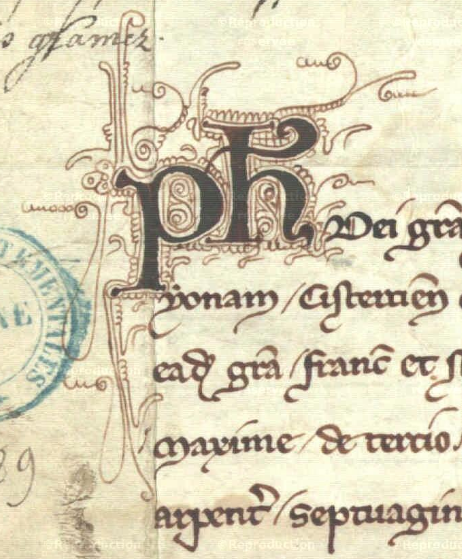 s gſamez.
ph Dei grā
yonam / Ciſtercien
ead gr̄a / franc̄ et
Maxime / de tercio.
arpent̄ / Septuagin
TEMENTALES
NE
89
©Reproduction